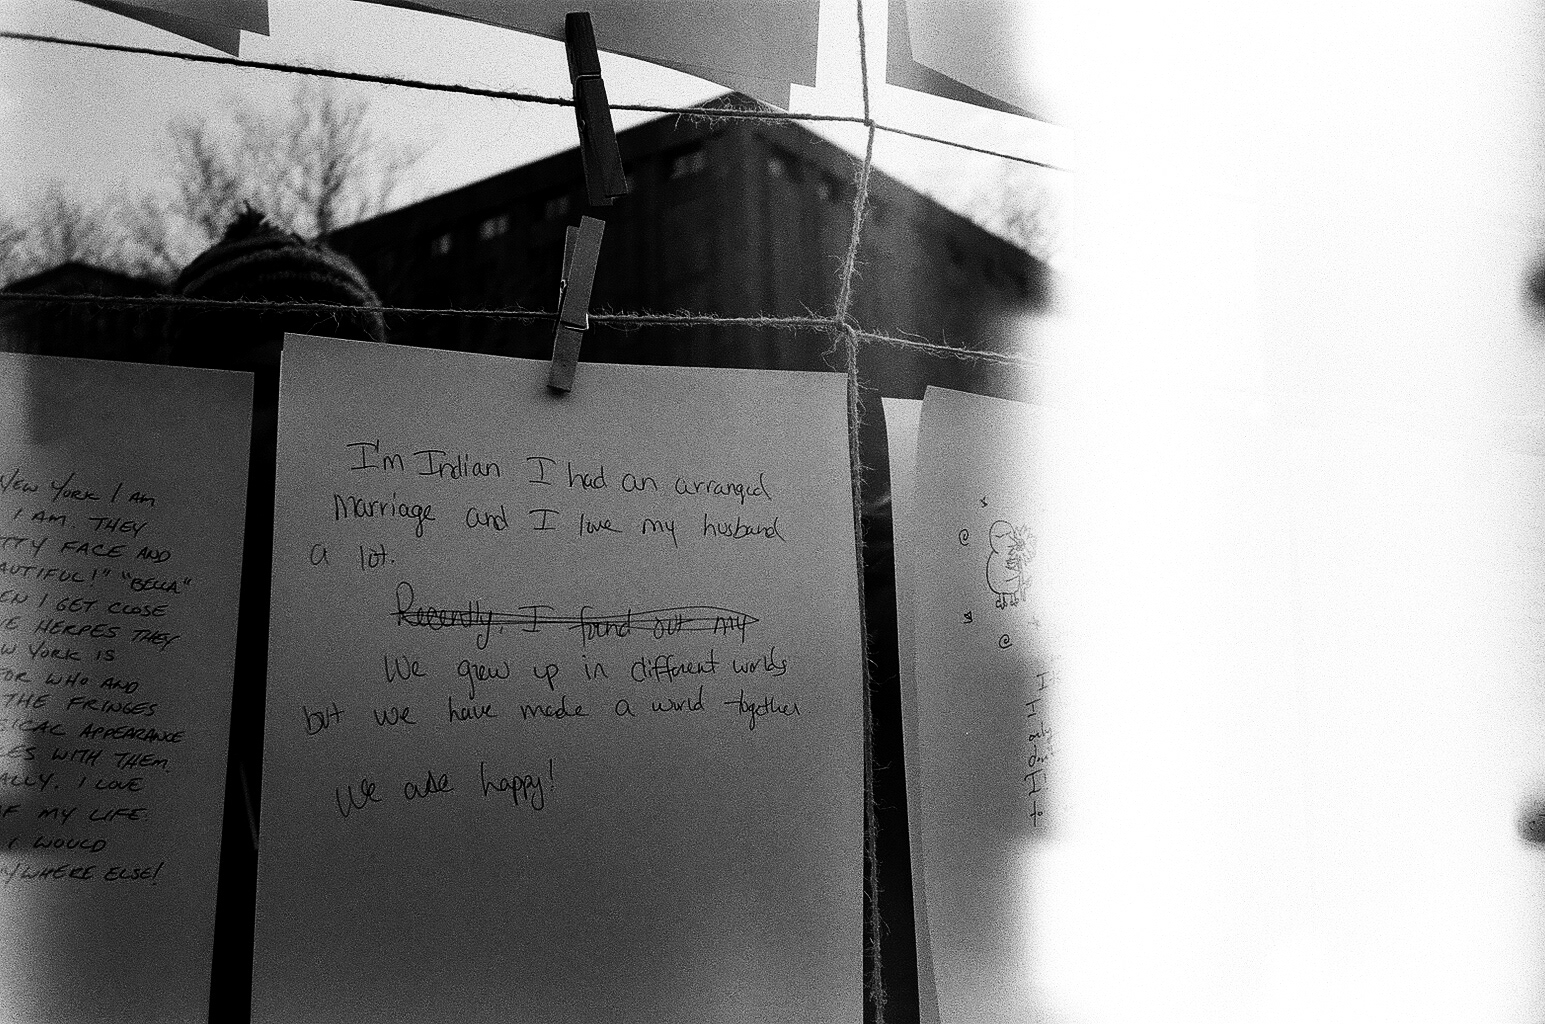 NEW YORK I AM
I AM. THEY
TTY FACE AND
AUTIFUL!" "BELLA"
EN I GET CLOSE
VE HERPES THEY
W YORK IS
FOR WHO AND
THE FRINGES
SICAL APPEARANCE
LES WITH THEM.
ALLY. I LOVE
OF MY LIFE.
I WOULD
YWHERE ELSE!
I'm Indian I had an arranged
marriage and I love my husband
a lot.
Recently, I found out my
We grew up in different worlds
but we have made a world together
We are happy!
I
I
only
I
to